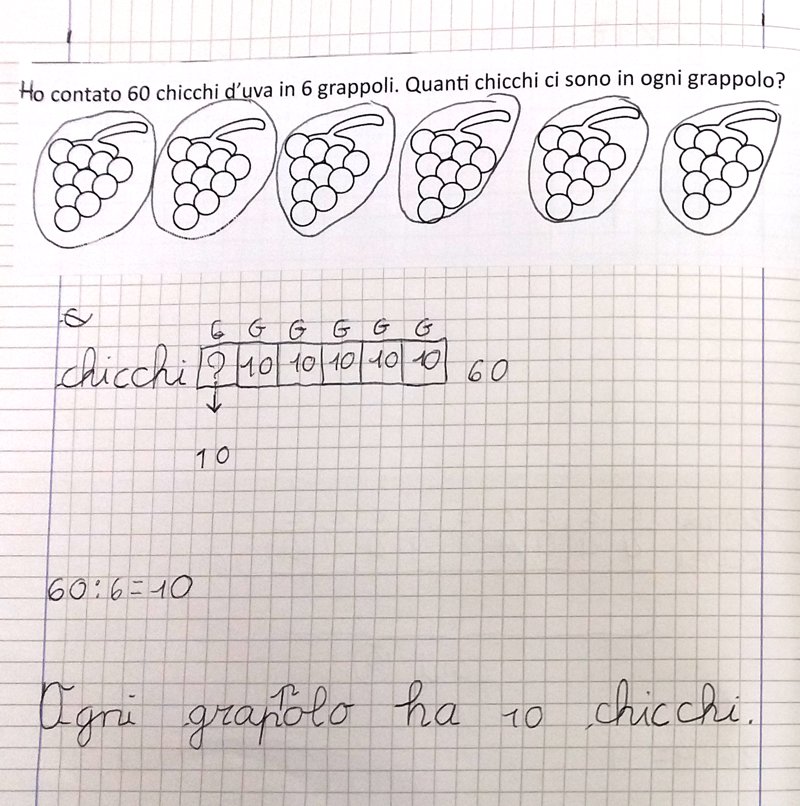 Ho contato 60 chicchi d'uva in 6 grappoli. Quanti chicchi ci sono in ogni grappolo?
G G G G G G
chicchi ? 10 10 10 10 10 60
↓
10
60:6=10
Ogni grappolo ha 10 chicchi.